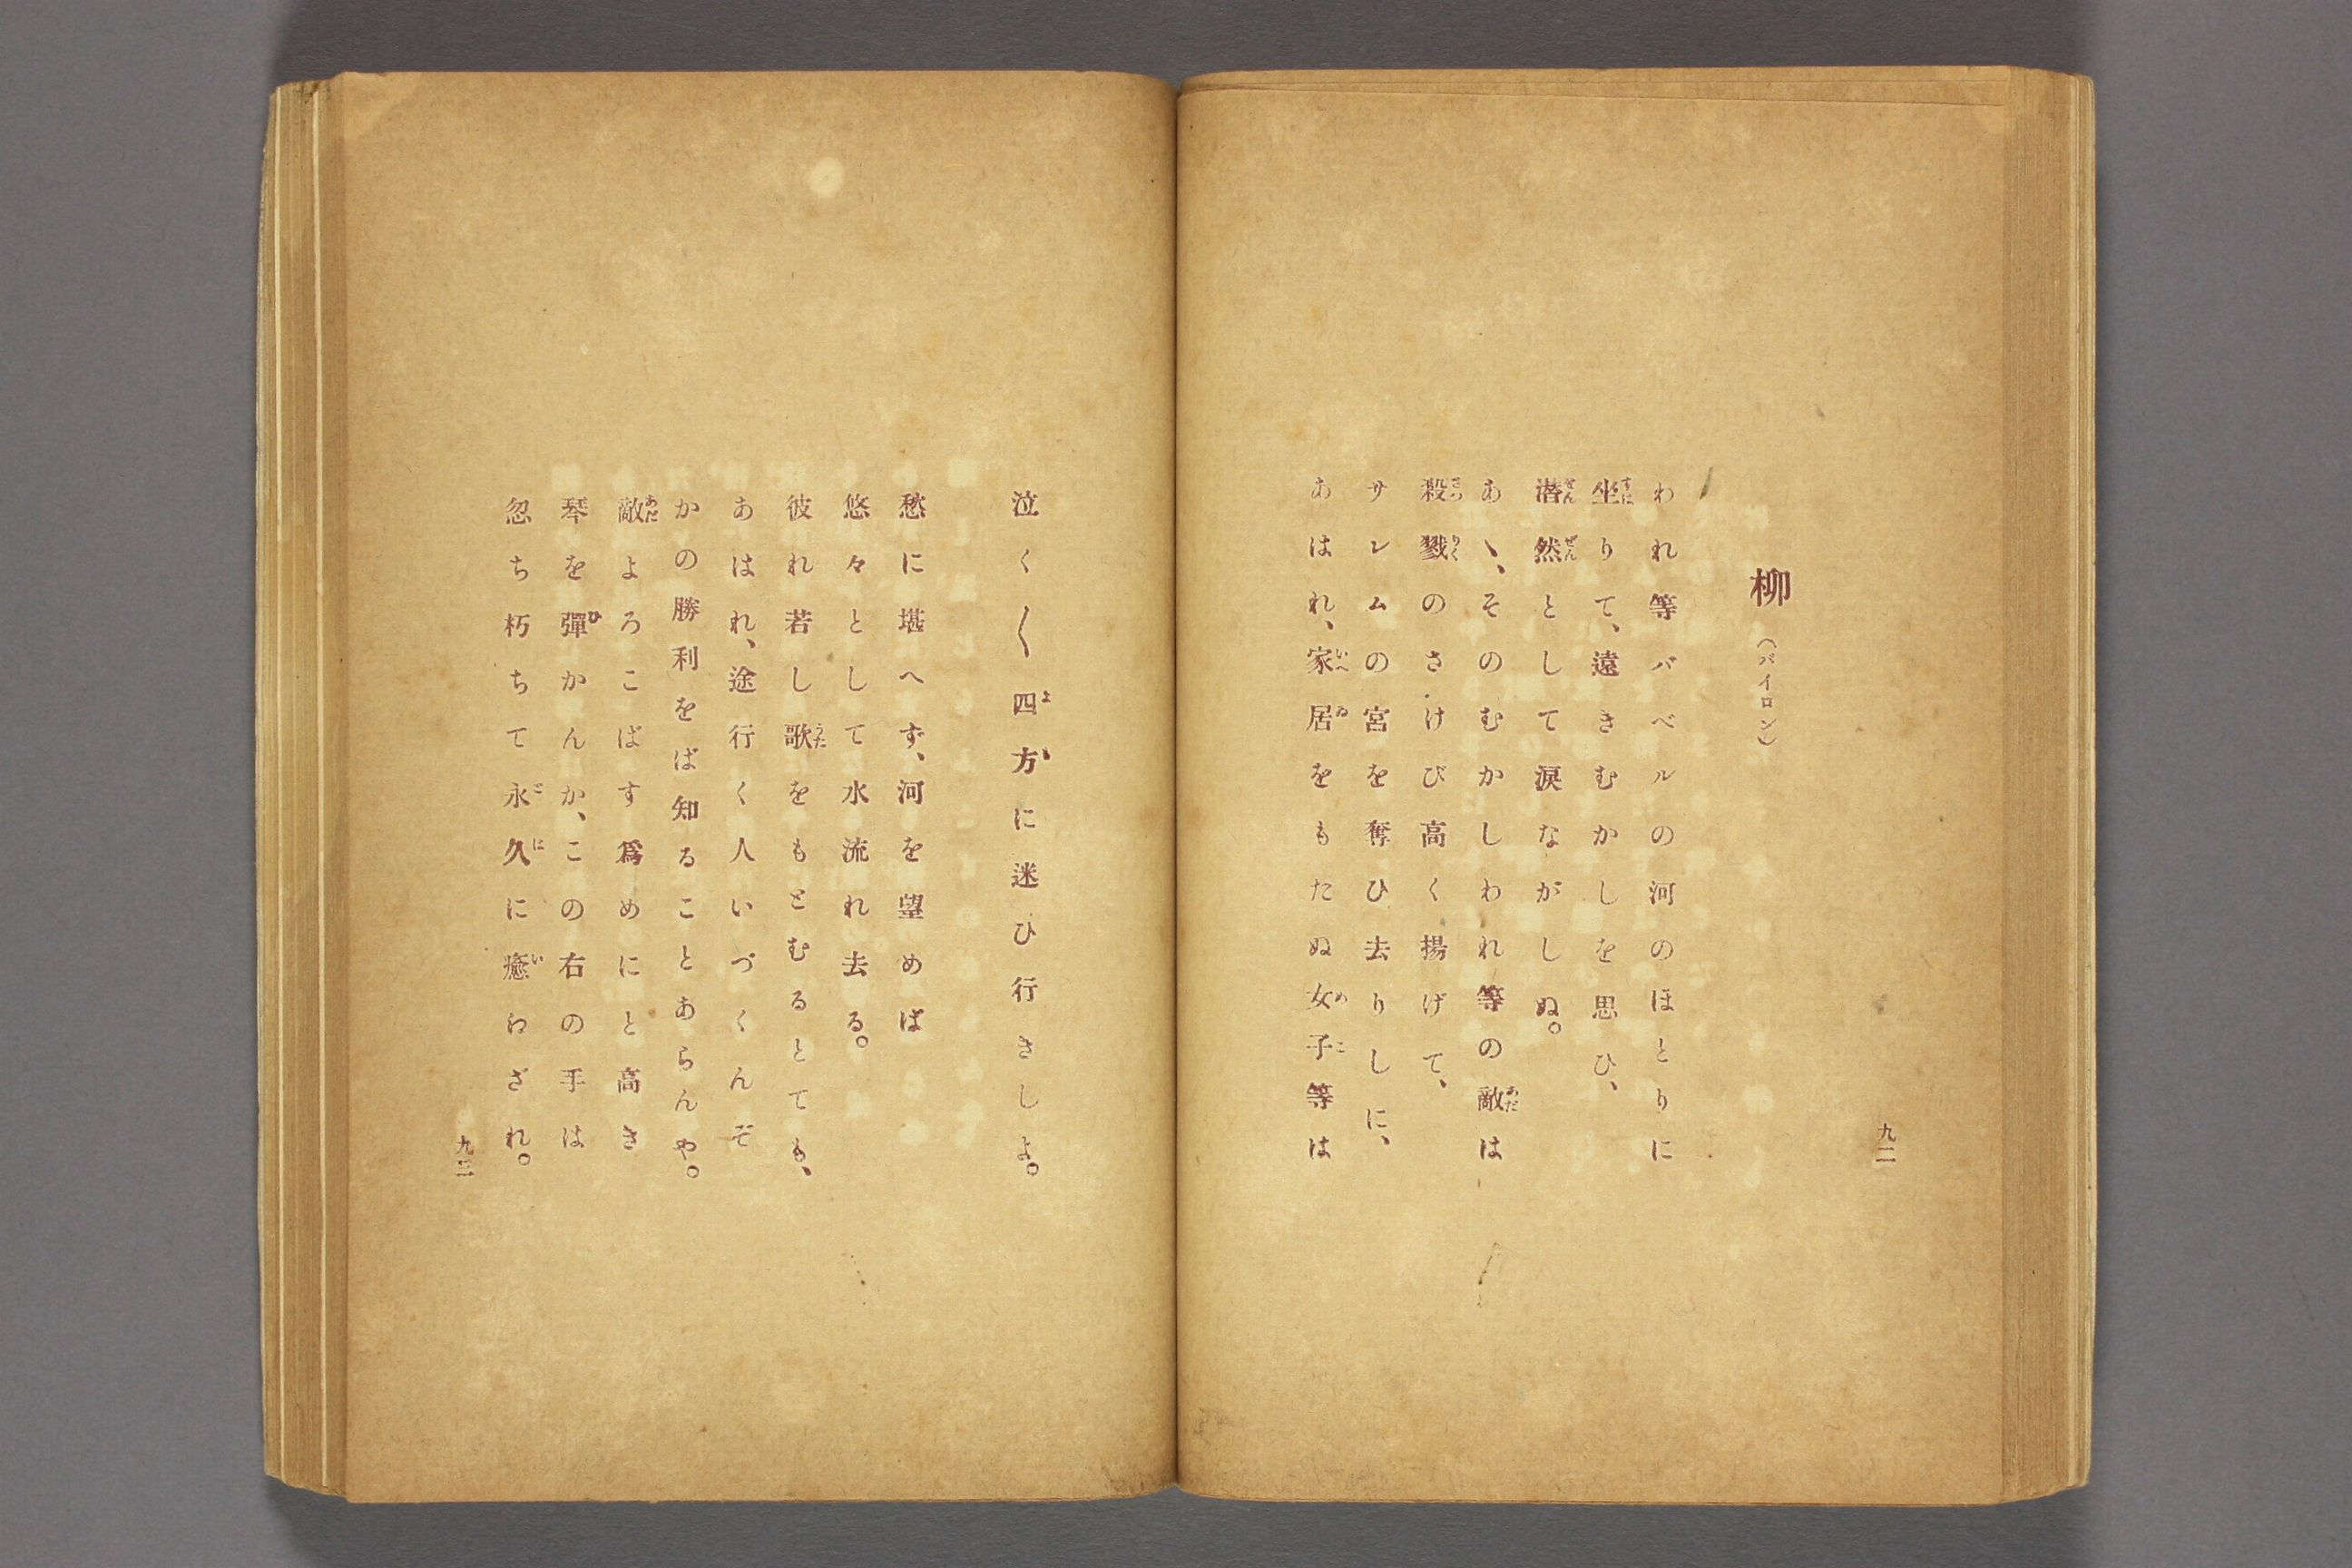 九二
柳(バイロン)
われ等バベルの河のほとりに
坐りて、遠きむかしを思ひ、
潜然として涙ながしぬ。
あゝ、そのむかしわれ等の敵は
殺戮のさけび高く揚げて、
サレムの宮を奪ひ去りしに、
あはれ、家居をもたぬ女子等は
泣く〳〵四方に迷ひ行きしよ。
愁に堪へず、河を望めば
悠々として水流れ去る。
彼れ若し歌をもとむるとても、
あはれ、途行く人いづくんぞ
かの勝利をば知ることあらんや。
敵よろこばす爲めにと高き
琴を彈かんか、この右の手は
忽ち朽ちて永久に癒わざれ。
九三